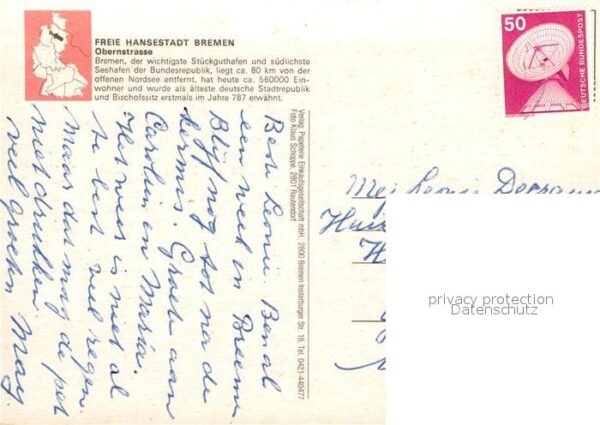 FREIE HANSESTADT BREMEN
Obernstrasse
Bremen, der wichtigste Stückguthafen und südlichste
Seehafen der Bundesrepublik, liegt ca. 80 km von der
offenen Nordsee entfernt, hat heute ca. 560000 Ein-
wohner und wurde als älteste deutsche Stadtrepublik
und Bischofssitz erstmals im Jahre 787 erwähnt.
50
DEUTSCHE BUNDESPOST
Verlag: Papeterie Einkaufsgesellschaft mbH, 2800 Bremen Insterburger Str. 18, Tel. 0421-446477
Foto Klaus Schoppe, 2801 Rautendorf
Beste Leonie. Ben al
een week in Bremen.
Blijf nog tot na de
kermis. Groet aan
Carolien en Maria.
Het weer is niet al
te best veel regen.
Maar dat mag de pret
niet drukken.
veel groetjes May
Mej Leonie
privacy protection
Datenschutz